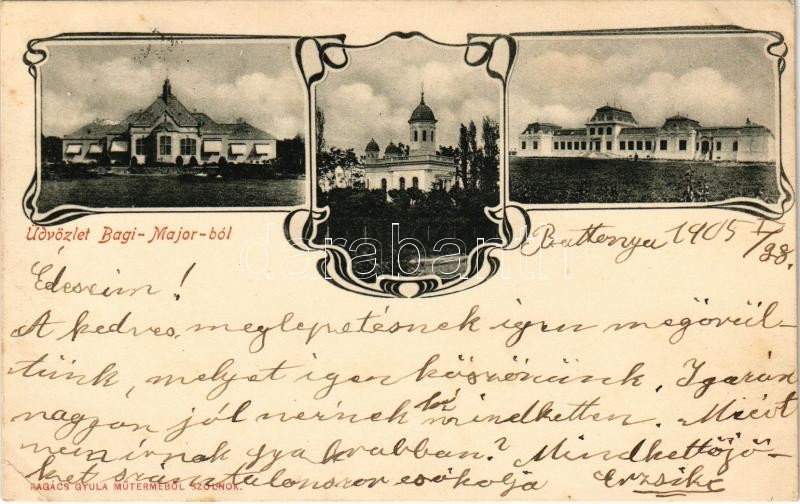 Üdvözlet Bagi-Major-ból
Battonya 1905 V/28.
Édeseim!
A kedves meglepetésnek igen megörül-
tünk, melyet igen köszönünk. Igazán
nagyon jól néznek ki mindketten. Miért
nem írnak gyakrabban? Mindkettőjö-
ket számtalanszor csókolja Erzsike
RAGÁCS GYULA MŰTERMÉBŐL SZOLNOK.
darabanth